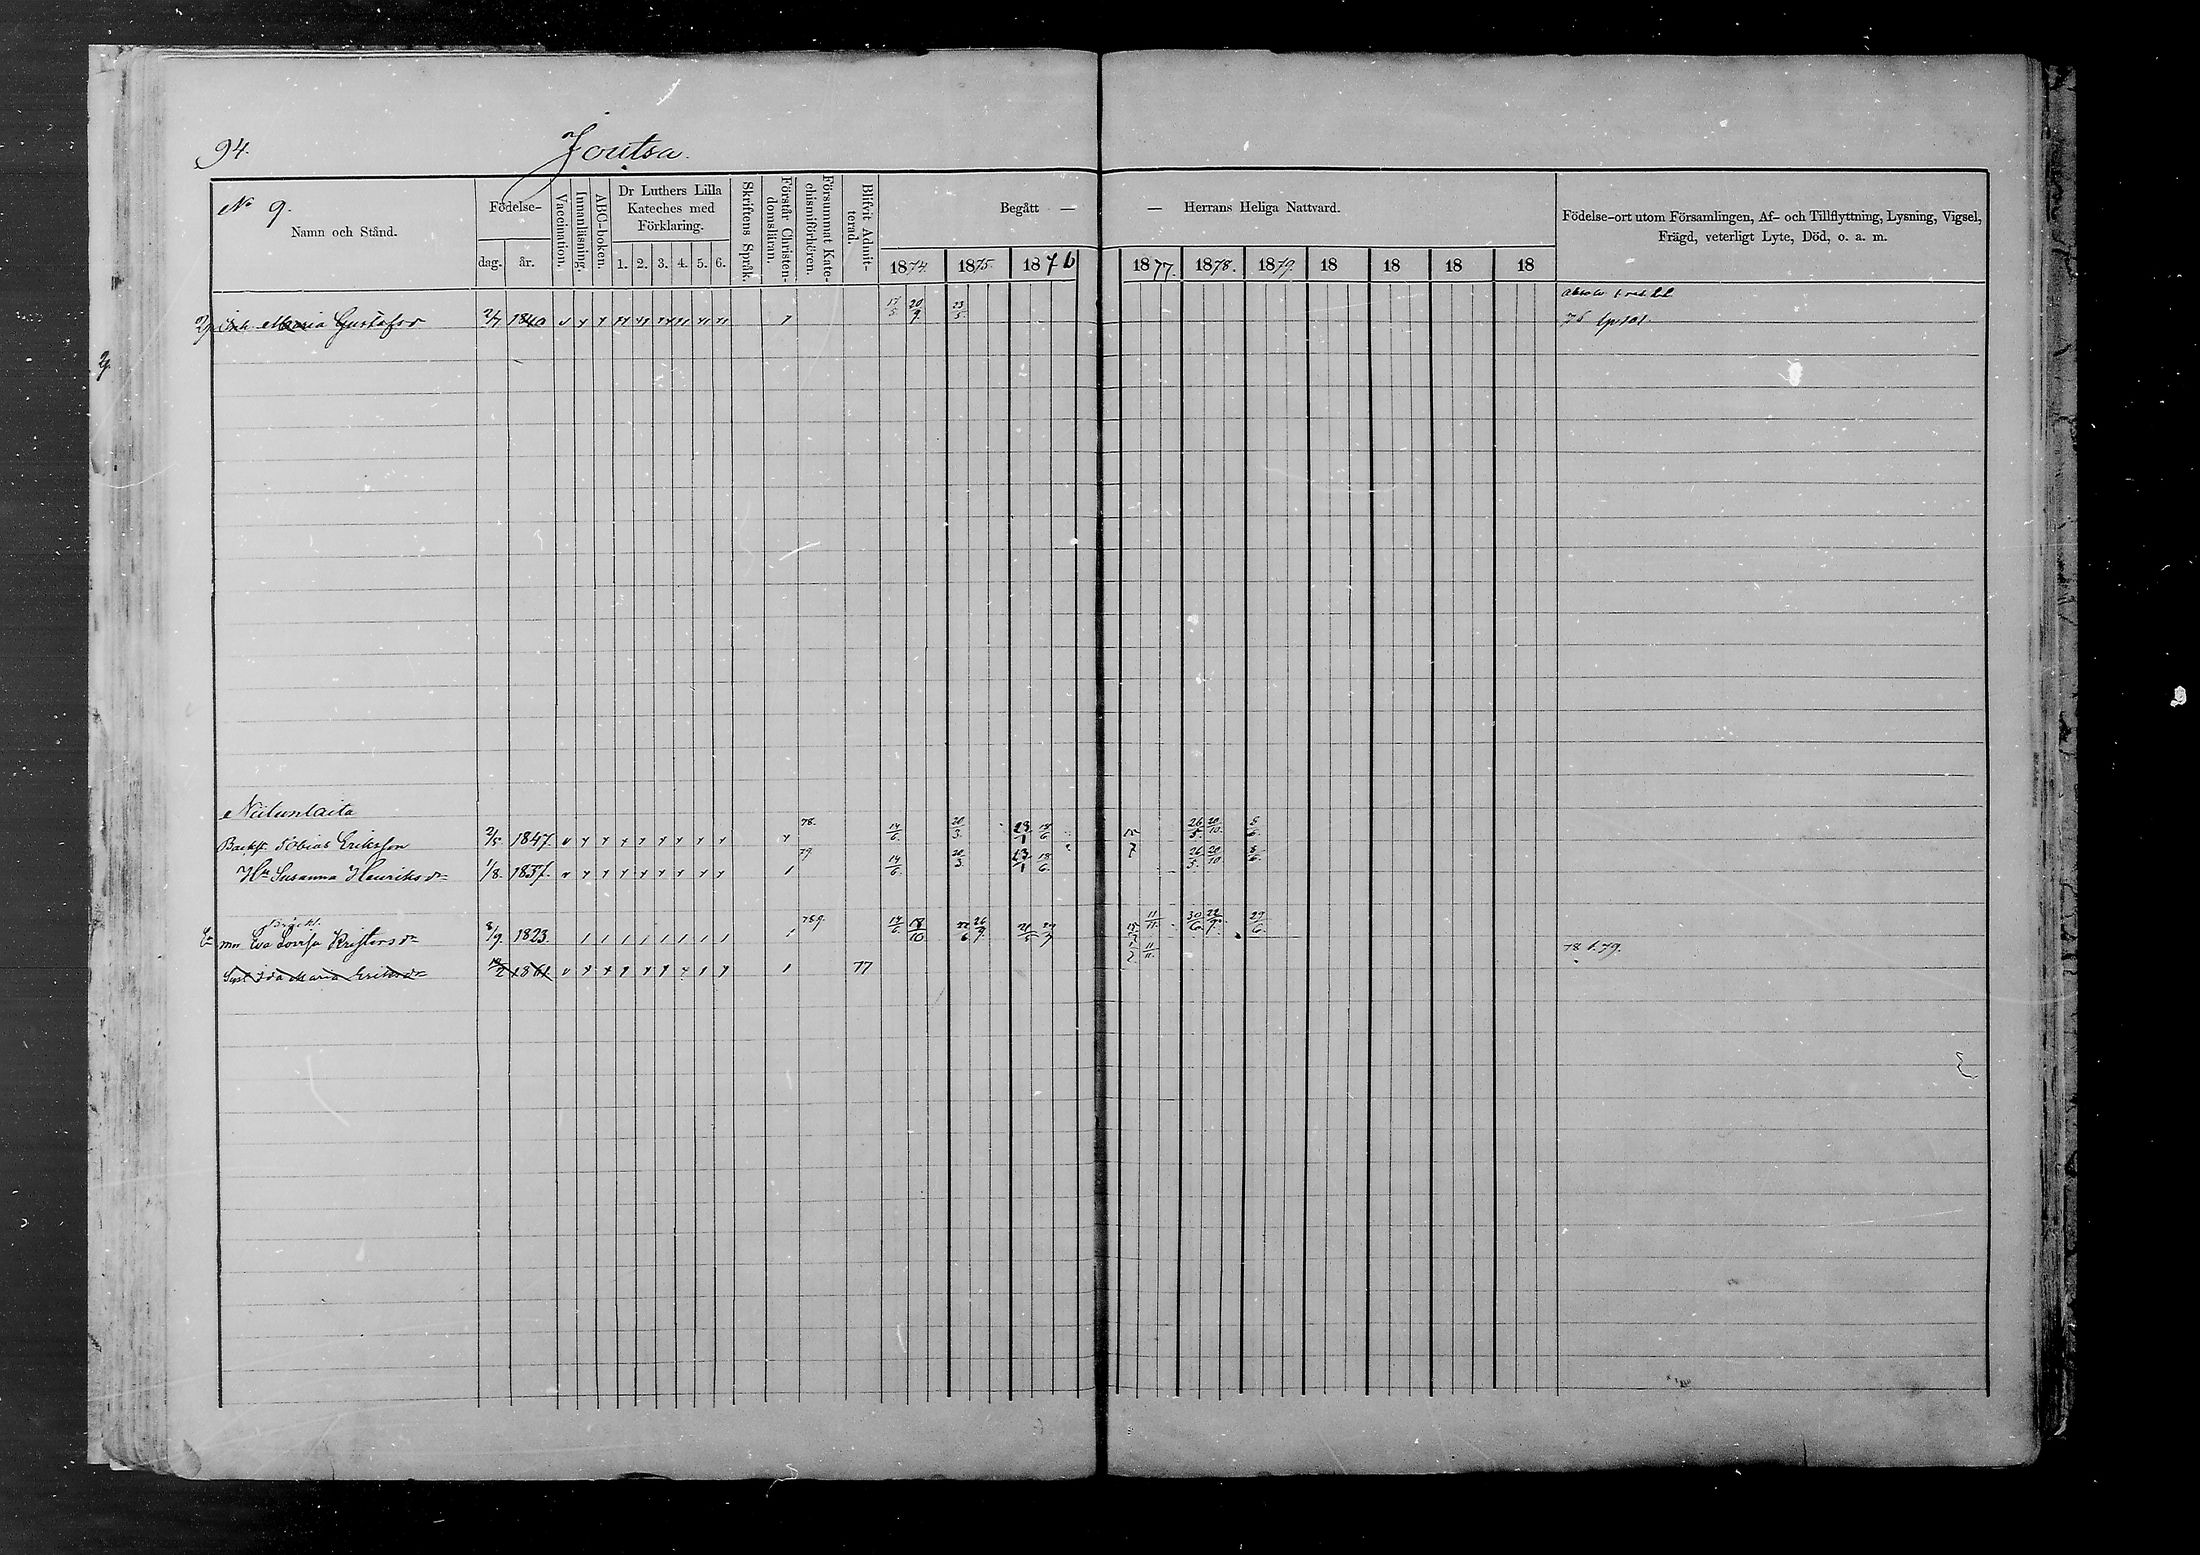 94.
Joutsa.
No 9.
Namn och Stånd.
Födelse-
dag. år.
Vaccination.
Innanläsning.
ABC-boken.
Dr Luthers Lilla
Kateches med
Förklaring.
1. 2. 3. 4. 5. 6.
Skriftens Språk.
Förstår Christen-
domsläran.
Försummat Kate-
chismiförhören.
Blifvit Admit-
terad.
Begått — — Herrans Heliga Nattvard.
1874. 1875. 1876 1877. 1878. 1879. 18 18 18 18
Födelse-ort utom Församlingen, Af- och Tillflyttning, Lysning, Vigsel,
Frägd, veterligt Lyte, Död, o. a. m.
17/5 20/9 23/5
Maria Gustafsd 2/7 1840
Niitunlaita
Tobias Eriksson 2/5 1847. 78. 14/6. 20/3. 23/1 18/6 26/5. 20/10. 8/6.
Hu Susanna Henriksdr 1/8. 1837. 79 14/6. 20/3. 23/1 18/6. 26/5. 20/10 8/6.
Eva Lovisa Kristersdr 8/9. 1823. 789. 14/6. 18/10 26/9. 11/11. 30/6 22/9. 29/6
78 f. 79.
Ida Maria Eriksdr 1861. 77 11/11.